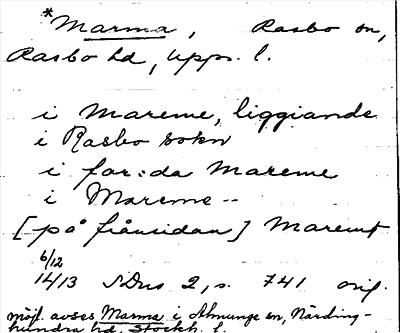 *Marma, Rasbo sn,
Rasbo hd, Upps. l.
i Mareme, liggiande
i Rasbo sokn
i for:da Mareme
i Mareme--
[på frånsidan] Maremt
6/12
1413 SDns 2, s. 741 orig.
möjl. avses Marma i Almunge sn, Närding-
hundra hd. Stockh. l.